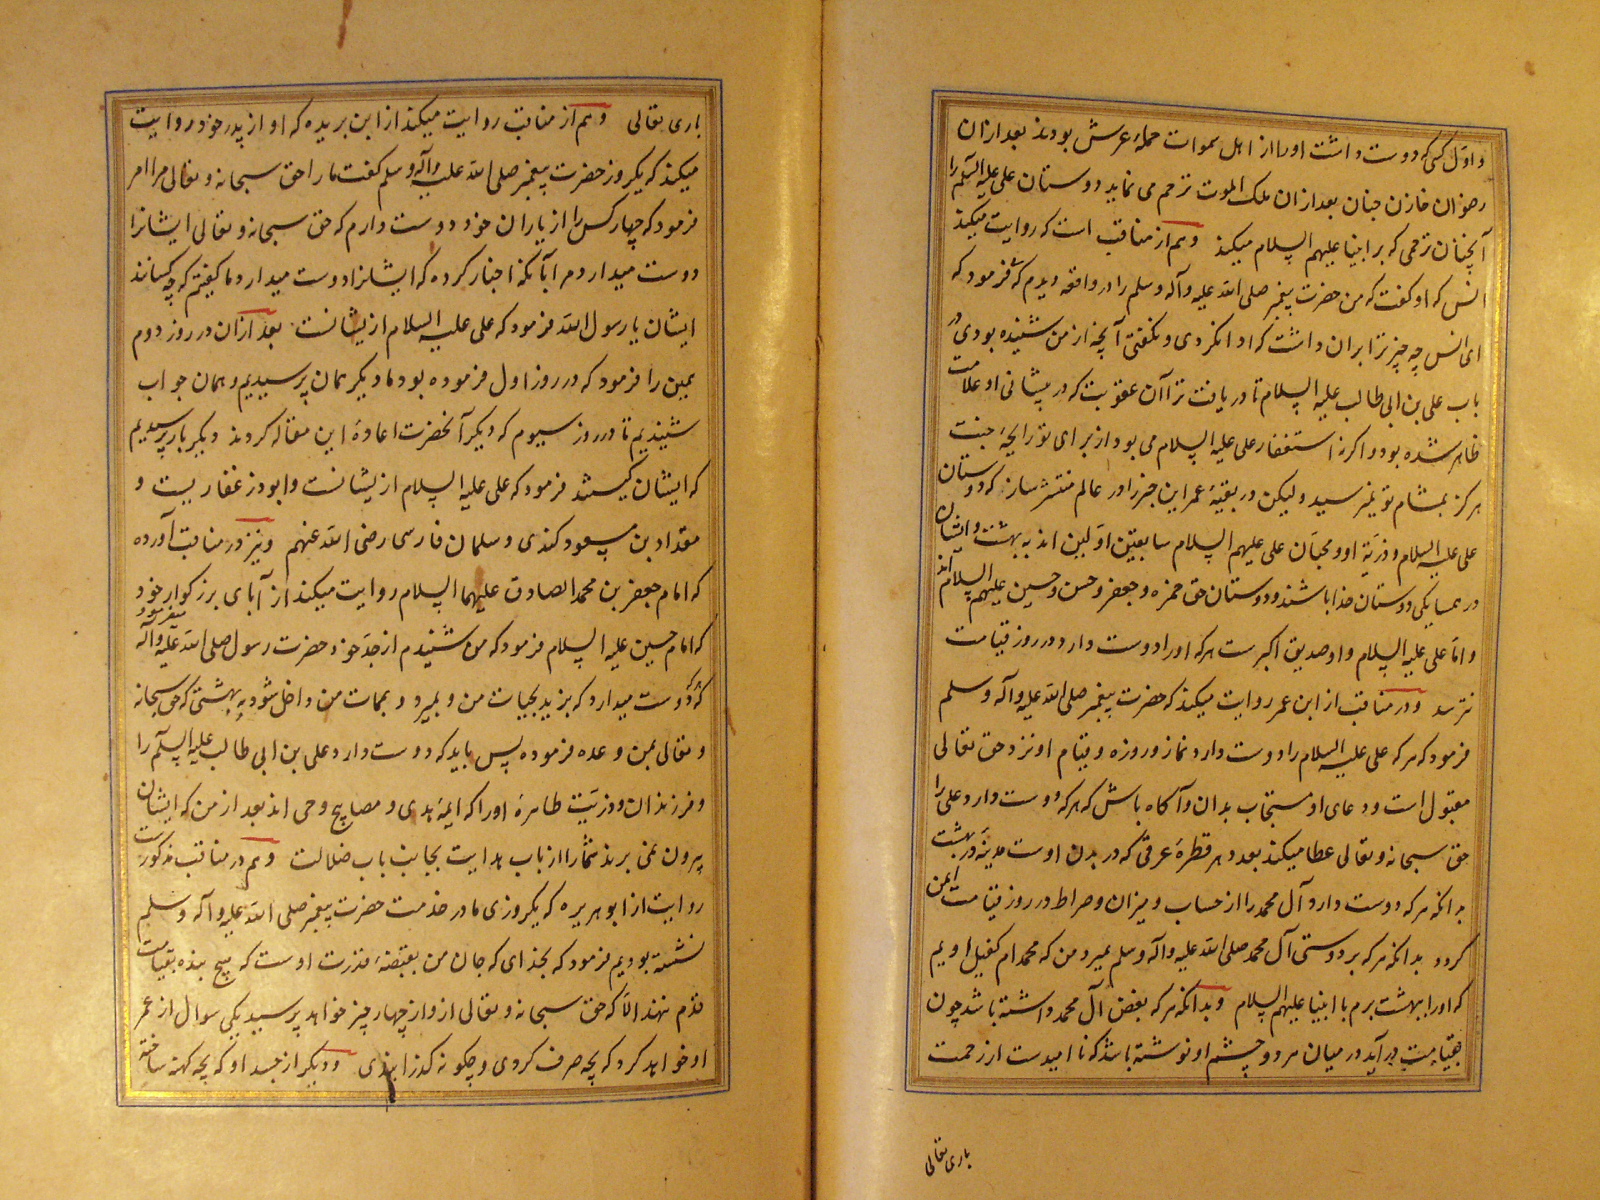 و اول کسی که دوست داشت او را از اهل سموات حملهٔ عرش بودند بعد ازان
رضوان خازن جنان بعد ازان ملک الموت ترحم می نماید دوستان علی علیه السلم را
آنچنان ترحمی که بر انبیا علیهم السلام میکند وهم از مناقب است که روایت میکند
انس که او گفت که من حضرت پیغمبر صلی الله علیه وآله وسلم را در واقعه دیدم که فرمود که
ای انس چه چیز ترا بران داشت که ادا نکردی و نگفتی آنچه از من شنیده بودی در
باب علی بن ابی طالب علیه السلام تا دریافت ترا آن عقوبت که در پیشانی او علامت
ظاهر شده بود و اگر نه استغفار علی علیه السلام می بود از برای تو رایحهٔ جنت
هرگز بمشام تو نمیرسید ولیکن در بقیهٔ عمر این خبر را در عالم منتشر ساز که دوستان
علی علیه السلام و ذریّة او و محبّان علی علیهم السلام سابقین اولین اند به بهشت و ایشان
در همسایگی دوستان خدا باشند و دوستان حق حمزه و جعفر و حسن و حسین علیهم السلام اند
و امّا علی علیه السلام و او صدیق اکبرست هر که او را دوست دارد در روز قیامت
نترسد و در مناقب از ابن عمر روایت میکند که حضرت پیغمبر صلی الله علیه وآله وسلم
فرمود که هر که علی علیه السلام را دوست دارد نماز و روزه و قیام او نزد حق تعالی
مقبول است و دعای او مستجاب بدان و آگاه باش که هر که دوست دارد علی را
حق سبحانه و تعالی عطا میکند بعدد هر قطرهٔ عرقی که در بدن اوست مدینهٔ در بهشت
بدانکه هر که دوست دارد آل محمد را از حساب و میزان و صراط در روز قیامت ایمن
گردد بدانکه هر که بر دوستی آل محمد صلی الله علیه وآله وسلم بمیرد من که محمدم کفیل اویم
که او را ببهشت برم با انبیا علیهم السلام و بدانکه هر که بغض آل محمد داشته باشد چون
بقیامت در آید در میان هر دو چشم او نوشته باشد که نا امیدست از رحمت
باری تعالی
باری تعالی وهم از مناقب روایت میکند از ابن بریده که او از پدر خود روایت
میکند که یکروز حضرت پیغمبر صلی الله علیه وآله وسلم گفت ما را حق سبحانه و تعالی مرا امر
فرمود که چهار کس را از یاران خود دوست دارم که حق سبحانه و تعالی ایشانرا
دوست میدارد و مرا آنکه اخبار کرده که ایشانرا دوست میدارد ما گفتیم که چه کسانند
ایشان یا رسول الله فرمود که علی علیه السلام از یشانست بعد ازان در روز دوم
بمین را فرمود که در روز اول فرموده بود ما دیگر همان پرسیدیم و همان جواب
شنیدیم تا در روز سیوم که دیگر آنحضرت اعادهٔ این مقاله کردند دیگر باز پرسیدیم
که ایشان کیستند فرمود که علی علیه السلام از یشانست و ابوذر غفاریست و
مقداد بن مسعود کندی و سلمان فارسی رضی الله عنهم و نیز در مناقب آورده
که امام جعفر بن محمد الصادق علیهما السلام روایت میکند از آبای بزرگوار خود
که امام حسین علیه السلام فرمود که من شنیدم از جدّ خود حضرت رسول صلی الله علیه وآله میفرمود
که هر که دوست میدارد که بزید بحیات من و بمیرد و بممات من و داخل شود به بهشتی که حق سبحانه
و تعالی بمن وعده فرموده پس باید که دوست دارد علی بن ابی طالب علیه السلم را
و فرزندان و ذریّت طاهرهٔ او را که ایمهٔ هدی و مصابیح وحی اند بعد از من که ایشان
بیرون نمی برند شما را از باب هدایت بجانب باب ضلالت وهم در مناقب مذکورست
روایت از ابوهریره که یکروزی ما در خدمت حضرت پیغمبر صلی الله علیه وآله وسلم
نشسته بودیم فرمود که بخدای که جان من بقبضهٔ قدرت اوست که هیچ بنده بقیامت
قدم ننهد الّا که حق سبحانه و تعالی ازو از چهار چیز خواهد پرسید یکی سوال از عمر
او خواهد کرد که بچه صرف کردی و چگونه گذرانیدی و دیگر از جسد او که بچه کهنه ساخته